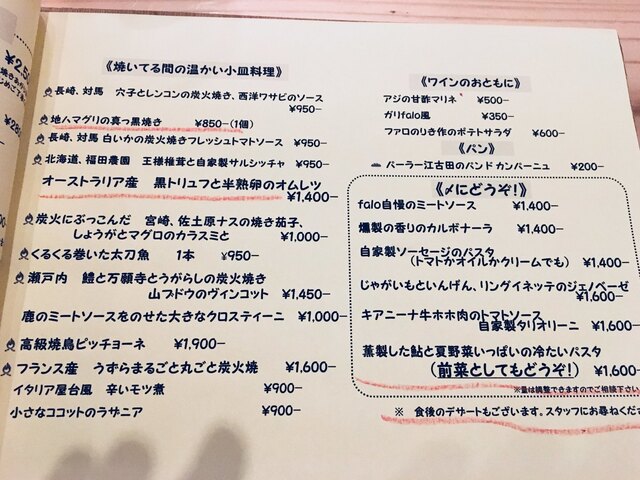 《焼いてる間の温かい小皿料理》
長崎、対馬 穴子とレンコンの炭火焼き、西洋ワサビのソース
¥950-
地ハマグリの真っ黒焼き ¥850-(1個)
長崎、対馬 白いかの炭火焼きフレッシュトマトソース ¥950-
北海道、福田農園 王様椎茸と自家製サルシッチャ ¥950-
オーストラリア産 黒トリュフと半熟卵のオムレツ
¥1,400-
炭火にぶっこんだ 宮崎、佐土原ナスの焼き茄子、
しょうがとマグロのカラスミと ¥1,000-
くるくる巻いた太刀魚 1本 ¥950-
瀬戸内 鱧と万願寺とうがらしの炭火焼き
山ブドウのヴィンコット ¥1,450-
鹿のミートソースをのせた大きなクロスティーニ ¥1,000-
高級焼鳥ピッチョーネ ¥1,900-
フランス産 うずらまるごと丸ごと炭火焼 ¥1,600-
イタリア屋台風 辛いモツ煮 ¥900-
小さなココットのラザニア ¥900-
《ワインのおともに》
アジの甘酢マリネ ¥500-
ガリfalo風 ¥350-
ファロのりき作のポテトサラダ ¥600-
《パン》
パーラー江古田のパンド カンパーニュ ¥200-
《〆にどうぞ!》
falo自慢のミートソース ¥1,400-
燻製の香りのカルボナーラ ¥1,400-
自家製ソーセージのパスタ
(トマトかオイルかクリームでも) ¥1,400-
じゃがいもといんげん、リングイネッテのジェノベーゼ
¥1,600-
キアニーナ牛ホホ肉のトマトソース
自家製タリオリーニ ¥1,600-
蒸製した鮎と夏野菜いっぱいの冷たいパスタ
(前菜としてもどうぞ!) ¥1,600-
※量は調整できますのでご相談下さい
※ 食後のデザートもございます。スタッフにお尋ねくださ